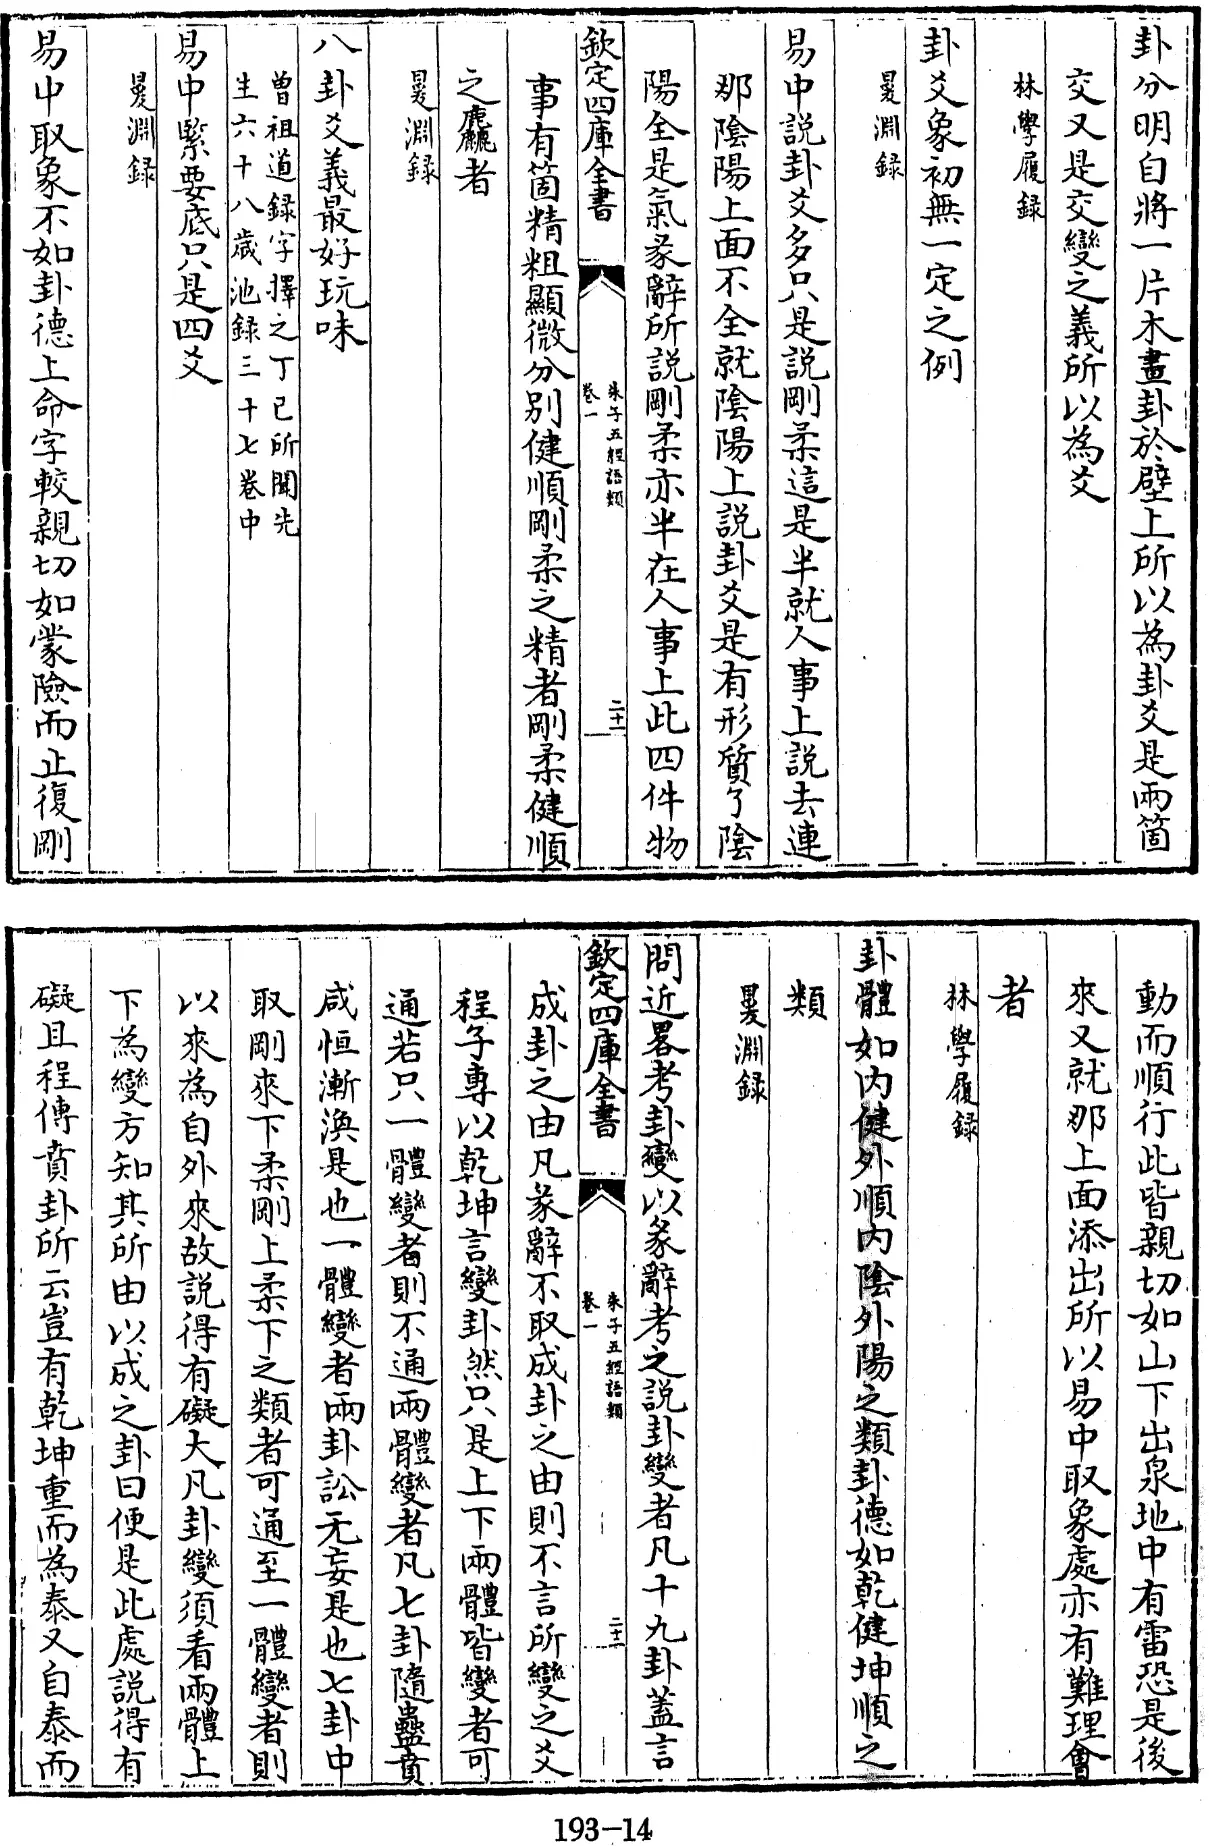 卦分明自將一片木畫卦於壁上所以為卦爻是兩箇
交又是交變之義所以為爻
林學履録
卦爻象初無一定之例
㬊淵録
易中説卦爻多只是説剛柔這是半就人事上説去連
那隂陽上面不全就隂陽上説卦爻是有形質了隂
陽全是氣彖辭所説剛柔亦半在人事上此四件物
欽定四庫全書
朱子五經語類
卷一
二十一
事有箇精粗顯微分别健順剛柔之精者剛柔健順
之麤者
㬊淵録
八卦爻義最好玩味
曽祖道録字擇之丁已所聞先
生六十八歳池録三十七卷中
易中緊要底只是四爻
㬊淵録
易中取象不如卦德上命字較親切如蒙險而止復剛
動而順行此皆親切如山下出泉地中有雷恐是後
來又就那上面添出所以易中取象處亦有難理會
者
林學履録
卦體如内健外順内隂外陽之類卦德如乾健坤順之
類
㬊淵録
問近畧考卦變以彖辭考之説卦變者凡十九卦蓋言
欽定四庫全書
朱子五經語類
卷一
二十二
成卦之由凡彖辭不取成卦之由則不言所變之爻
程子專以乾坤言變卦然只是上下兩體皆變者可
通若只一體變者則不通兩體變者凡七卦隨蠱賁
咸恒漸渙是也一體變者兩卦訟无妄是也七卦中
取剛來下柔剛上柔下之類者可通至一體變者則
以來為自外來故説得有礙大凡卦變須看兩體上
下為變方知其所由以成之卦曰便是此處説得有
礙且程傳賁卦所云豈有乾坤重而為泰又自泰而
193-14